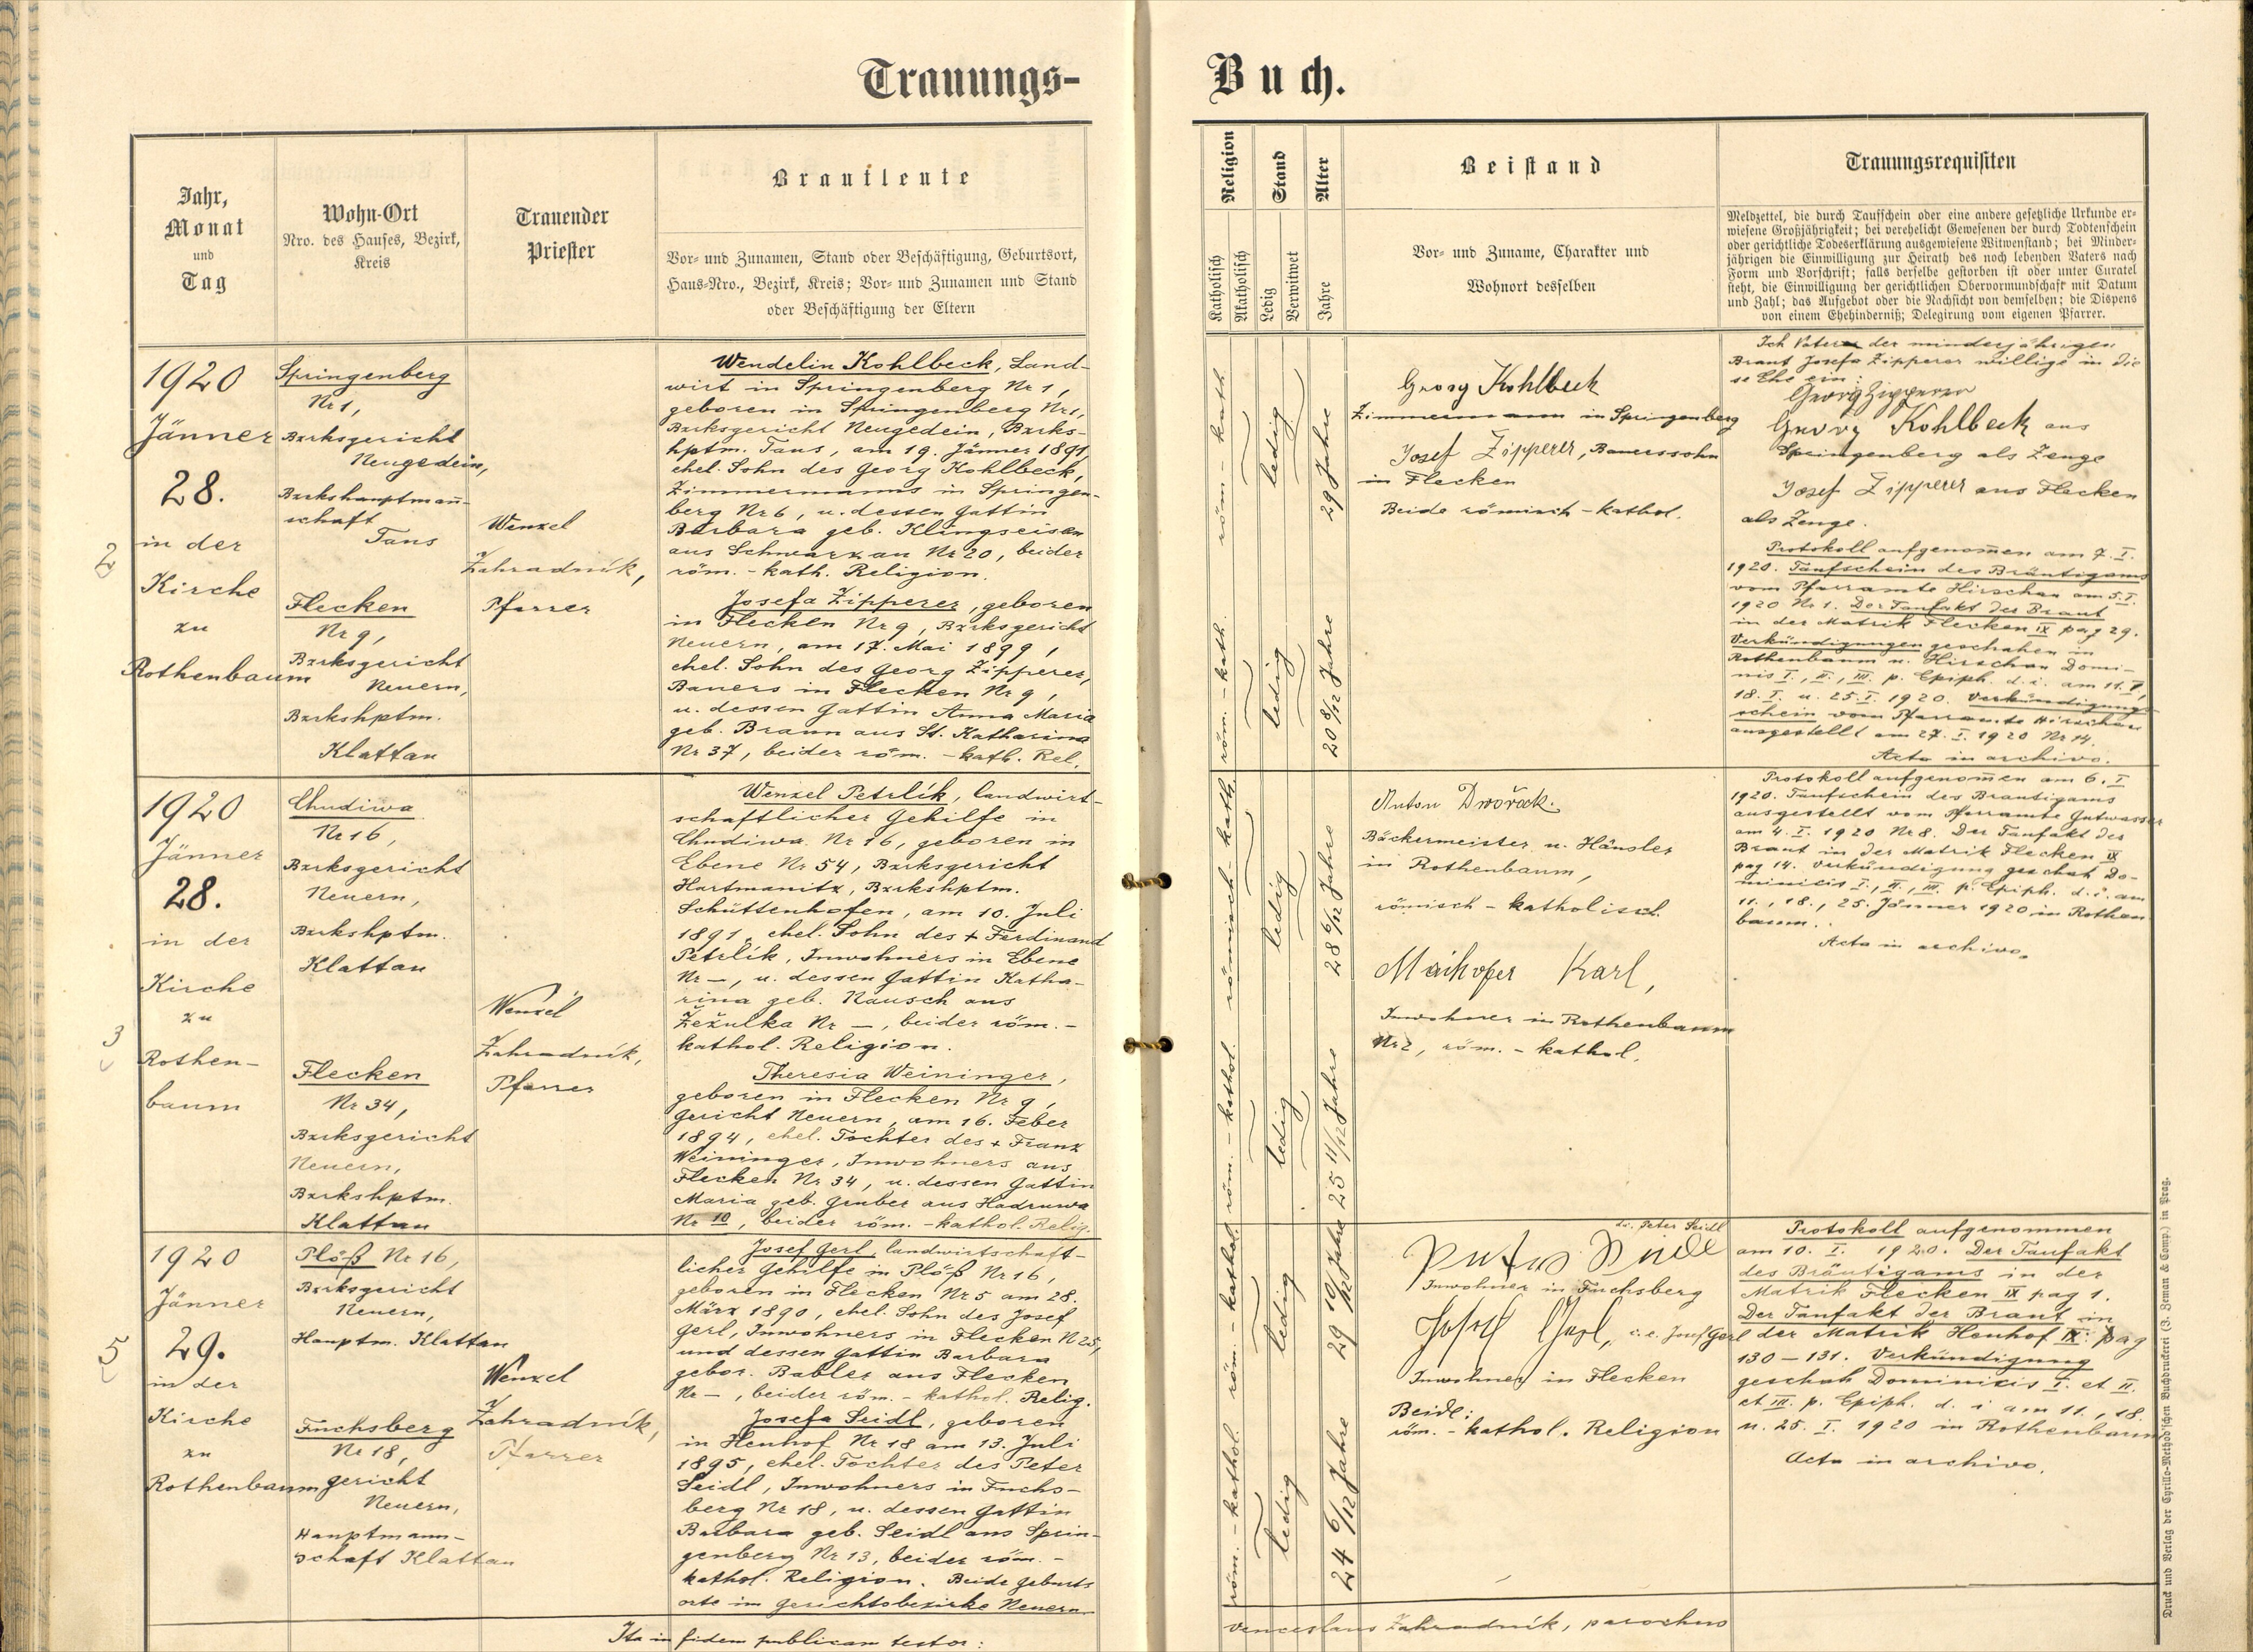 Trauungs-
Buch.
Jahr,
Monat
und
Tag
Wohn-Ort
Nro. des Hauses, Bezirk,
Kreis
Trauender
Priester
Brautleute
Vor- und Zunamen, Stand oder Beschäftigung, Geburtsort,
Haus-Nro., Bezirk, Kreis; Vor- und Zunamen und Stand
oder Beschäftigung der Eltern
Religion
Katholisch
Akatholisch
Stand
Ledig
Verwitwet
Alter
Jahre
Beistand
Vor- und Zuname, Charakter und
Wohnort desselben
Trauungsrequisiten
Meldzettel, die durch Taufschein oder eine andere gesetzliche Urkunde er-
wiesene Großjährigkeit; bei verehelicht Gewesenen der durch Todtenschein
oder gerichtliche Todeserklärung ausgewiesene Witwenstand; bei Minder-
jährigen die Einwilligung zur Heirath des noch lebenden Vaters nach
Form und Vorschrift; falls derselbe gestorben ist oder unter Curatel
steht, die Einwilligung der gerichtlichen Obervormundschaft mit Datum
und Zahl; das Aufgebot oder die Nachsicht von demselben; die Dispens
von einem Ehehinderniß; Delegirung vom eigenen Pfarrer.
2
1920
Jänner
28.
in der
Kirche
zu
Rothenbaum
Springenberg
Nr 1,
Bzrksgericht
Neugedein,
Bzrkshauptmañ-
schaft
Taus
Flecken
Nr 9,
Bzrksgericht
Neuern,
Bzrkshptm.
Klattau
Wenzel
Zahradník,
Pfarrer
Wendelin Kohlbeck, Land-
wirt in Springenberg Nr 1,
geboren in Springenberg Nr 1,
Bzrksgericht Neugedein, Bzrks-
hptm. Taus, am 19. Jänner 1891,
ehel. Sohn des Georg Kohlbeck,
Zimmermanns in Springen-
berg Nr 6, u. dessen Gattin
Barbara geb. Klingseisen
aus Schwarzau Nr 20, beider
röm. - kath. Religion.
Josefa Zipperer, geboren
in Flecken Nr 9, Bzrksgericht
Neuern, am 17. Mai 1899,
ehel. Sohn des Georg Zipperer,
Bauers in Flecken Nr 9,
u. dessen Gattin Anna Maria
geb. Braun aus St. Katharina
Nr 37, beider röm. - kath. Rel.
röm - kath.
ledig
29 Jahre
röm. - kath.
ledig
20 8/12 Jahre
Georg Kohlbeck
Zimmermann in Springenberg
Josef Zipperer, Bauerssohn
in Flecken
Beide römisch - kathol.
Ich Vater der minderjährigen
Braut Josefa Zipperer willige in die
se Ehe ein:
Georg Zipperer
Georg Kohlbeck aus
Springenberg als Zeuge
Josef Zipperer aus Flecken
als Zeuge.
Protokoll aufgenom̄en am 7. I.
1920. Taufschein des Bräutigams
vom Pfarramte Hirschau am 5. I.
1920 Nr 1. Der Taufakt der Braut
in der Matrik Flecken IX pag 29.
Verkündigungen geschahen in
Rothenbaum u. Hirschau Domi-
nis I., II., III. p. Epiph. d. i. am 11. I.,
18. I. u. 25. I. 1920. Verkündigungs-
schein vom Pfarramte Hirschau
ausgestellt am 27. I. 1920 Nr 14.
Acta in archivo.
3
1920
Jänner
28.
in der
Kirche
zu
Rothen-
baum
Chudiwa
Nr 16,
Bzrksgericht
Neuern,
Bzrkshptm.
Klattau
Flecken
Nr 34,
Bzrksgericht
Neuern,
Bzrkshptm.
Klattau
Wenzel
Zahradník,
Pfarrer
Wenzel Petrlík, landwirt-
schaftlicher Gehilfe in
Chudiwa Nr 16, geboren in
Ebene Nr 54, Bzrksgericht
Hartmanitz, Bzrkshptm.
Schüttenhofen, am 10. Juli
1891, ehel. Sohn des + Ferdinand
Petrlík, Inwohners in Ebene
Nr —, u. dessen Gattin Katha-
rina geb. Nausch aus
Žežulka Nr —, beider röm. -
kathol. Religion.
Theresia Weininger,
geboren in Flecken Nr 9,
Gericht Neuern, am 16. Feber
1894, ehel. Tochter des + Franz
Weininger, Inwohners aus
Flecken Nr 34, u. dessen Gattin
Maria geb. Gruber aus Hadruwa
Nr 10, beider röm. - kathol. Relig.
römisch - kath.
ledig
28 6/12 Jahre
röm. - kathol.
ledig
25 11/12 Jahre
Anton Dwořack.
Bäckermeister u. Häusler
in Rothenbaum,
römisch - katholisch.
Maihofer Karl,
Inwohner in Rothenbaum
Nr 2, röm. - kathol.
Protokoll aufgenom̄en am 6. I
1920. Taufschein des Brautigams
ausgestellt vom Pfarramte Gutwasser
am 4. I. 1920 Nr 8. Der Taufakt der
Braut in der Matrik Flecken IX
pag 14. Verkündigung geschah Do-
minicis I., II., III. p. Epiph. d. i. am
11., 18., 25. Jänner 1920 in Rothen
baum.
Acta in archivo.
5
1920
Jänner
29.
in der
Kirche
zu
Rothenbaum
Plöß Nr 16,
Bzrksgericht
Neuern,
Hauptm. Klattau
Fuchsberg
Nr 18,
gericht
Neuern,
Hauptmann-
schaft Klattau
Wenzel
Zahradník,
Pfarrer
Josef Gerl, landwirtschaft-
licher Gehilfe in Plöß Nr 16,
geboren in Flecken Nr 5 am 28.
März 1890, ehel. Sohn des Josef
Gerl, Inwohners in Flecken N 25,
und dessen Gattin Barbara
gebor. Babler aus Flecken
Nr —, beider röm. - kathol. Relig.
Josefa Seidl, geboren
in Heuhof Nr 18 am 13. Juli
1895, ehel. Tochter des Peter
Seidl, Inwohners in Fuchs-
berg Nr 18, u. dessen Gattin
Barbara geb. Seidl aus Sprin-
genberg Nr 13, beider röm. -
kathol. Religion. Beide Geburts
orte im Gerichtsbezirke Neuern
röm. - kathol.
ledig
29 10/12 Jahre
röm. - kathol.
ledig
24 6/12 Jahre
d.i. Peter Seidl
Peter Seidl
Inwohner in Fuchsberg
Josef Gerl, i. e. Josef Gerl
Inwohner in Flecken
Beide:
röm. - kathol. Religion
Protokoll aufgenommen
am 10. I. 1920. Der Taufakt
des Bräutigams in der
Matrik Flecken IX pag 1.
Der Taufakt der Braut in
der Matrik Heuhof IX: pag
130 - 131. Verkündigung
geschah Dominicis I. et II.
et III. p. Epiph. d. i am 11., 18.
u. 25. I. 1920 in Rothenbaum
Acta in archivo.
Ita in fidem publicam testor:
Venceslaus Zahradník, parochus
Druck und Verlag der Cyrillo-Method'schen Buchdruckerei (J. Zeman & Comp.) in Prag.